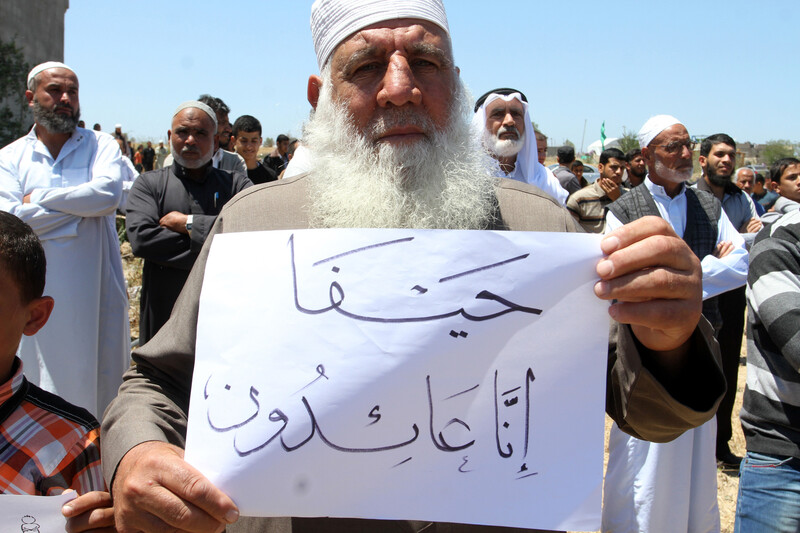 حيفا
إنَّا عائدون